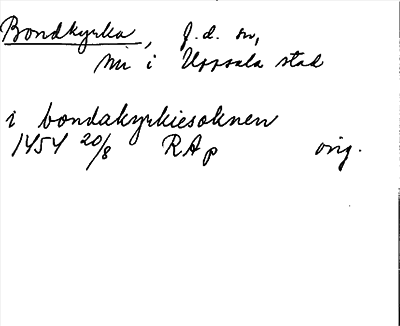 Bondkyrka, f.d. sn,
nu i Uppsala stad
i bondakyrkiesoknen
1454 20/8 RAp orig.